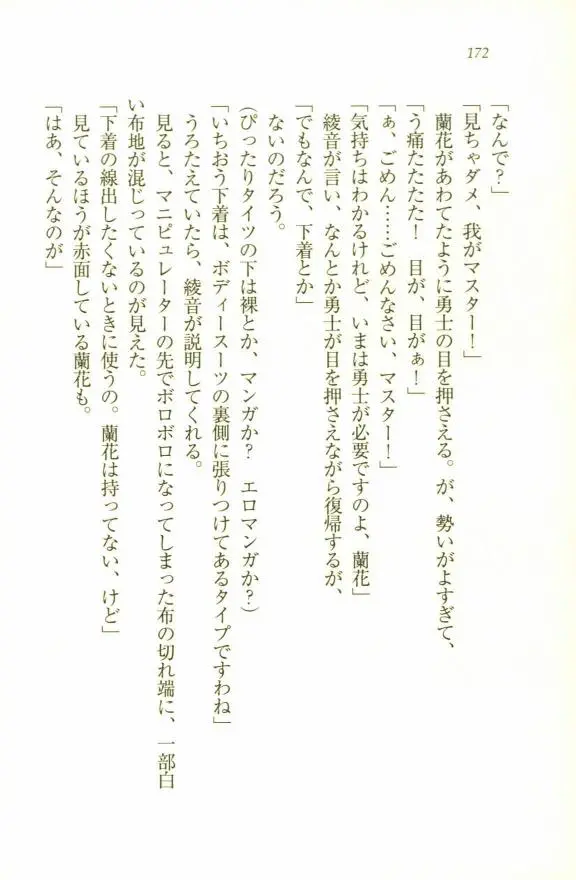 172
「なんで?」
「見ちゃダメ、我がマスター!」
蘭花があわてたように勇士の目を押さえる。が、勢いがよすぎて、
「う痛たたたた! 目が、目がぁ!」
「ぁ、ごめん……ごめんなさい、マスター!」
「気持ちはわかるけれど、いまは勇士が必要ですのよ、蘭花」
綾音が言い、なんとか勇士が目を押さえながら復帰するが、
「でもなんで、下着とか」
ないのだろう。
(ぴったりタイツの下は裸とか、マンガか? エロマンガか?)
「いちおう下着は、ボディースーツの裏側に張りつけてあるタイプですわね」
うろたえていたら、綾音が説明してくれる。
見ると、マニピュレーターの先でボロボロになってしまった布の切れ端に、一部白
い布地が混じっているのが見えた。
「下着の線出したくないときに使うの。蘭花は持ってない、けど」
見ているほうが赤面している蘭花も。
「はあ、そんなのが」